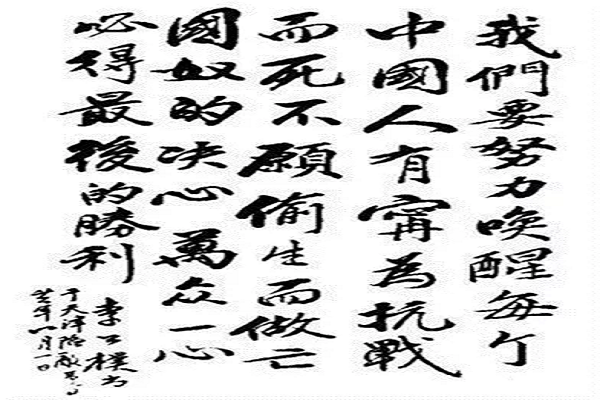 我們要努力喚醒每个
中國人有寧為抗戰
而死不願偷生而做亡
國奴的决心萬众一心
必得最後的勝利
李公樸书
于天津陷敵
年八月一日